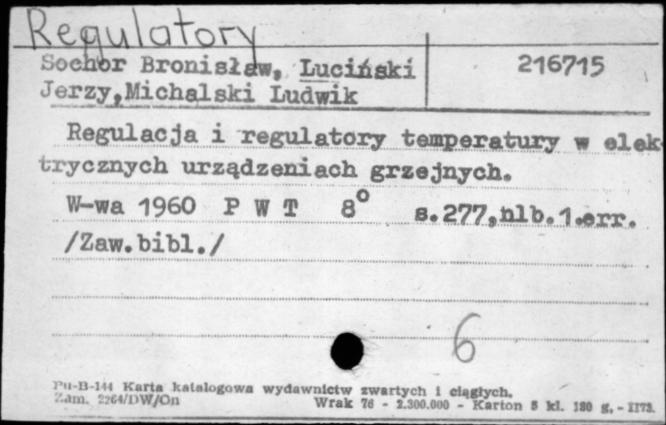 Regulatory
Sochor Bronisław, Luciński
216715
Jerzy,Michalski Ludwik
Regulacja i regulatory temperatury w elek
trycznych urządzeniach grzejnych.
W-wa 1960 P W T 8° s.277,nlb.1.err.
/Zaw.bibl./
6
Pu-B-144 Karta katalogowa wydawnictw zwartych i ciągłych.
Zam. 2264/DW/On Wrak 76 - 2.300.000 - Karton 5 kl. 180 g. - II73.